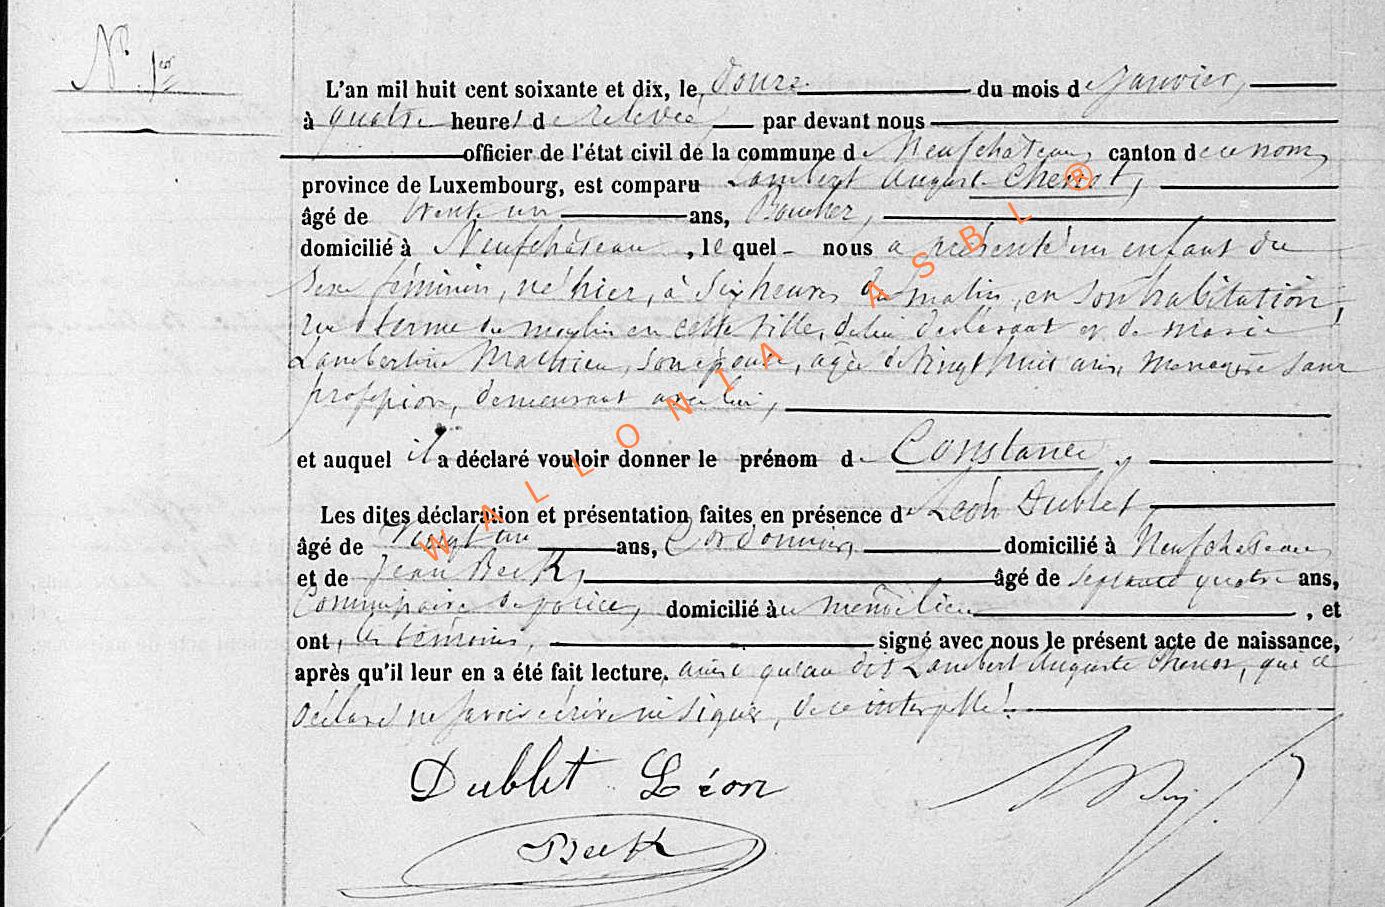 N° 1er
L'an mil huit cent soixante et dix, le douze du mois de Janvier,
à quatre heures de relevée, par devant nous
officier de l'état civil de la commune de Neufchâteau, canton de ce nom,
province de Luxembourg, est comparu Lambert August Chenot,
âgé de trente un ans, Boucher,
domicilié à Neufchâteau, lequel nous a présenté un enfant du
sexe féminin, né hier, à six heures du matin, en son habitation,
rue terme du moulin en cette ville, de lui déclarant et de Marie
Lambertine Mathieu, son épouse, agée de vingt huit ans, menagère sans
profession, demeurant avec lui,
et auquel il a déclaré vouloir donner le prénom de Constance,
Les dites déclaration et présentation faites en présence de Léon Dublet,
âgé de vingt un ans, Cordonnier, domicilié à Neufchateau
et de Jean Beck, âgé de septante quatre ans,
Commissaire de police, domicilié au même lieu, et
ont, les témoins, signé avec nous le présent acte de naissance,
après qu'il leur en a été fait lecture, ainsi qu'au dit Lambert Auguste Chenot, qui a
déclaré ne savoir écrire ni signer, de ce interpellé.
Dublet Léon
Beck
WALLONIA ASBL ®